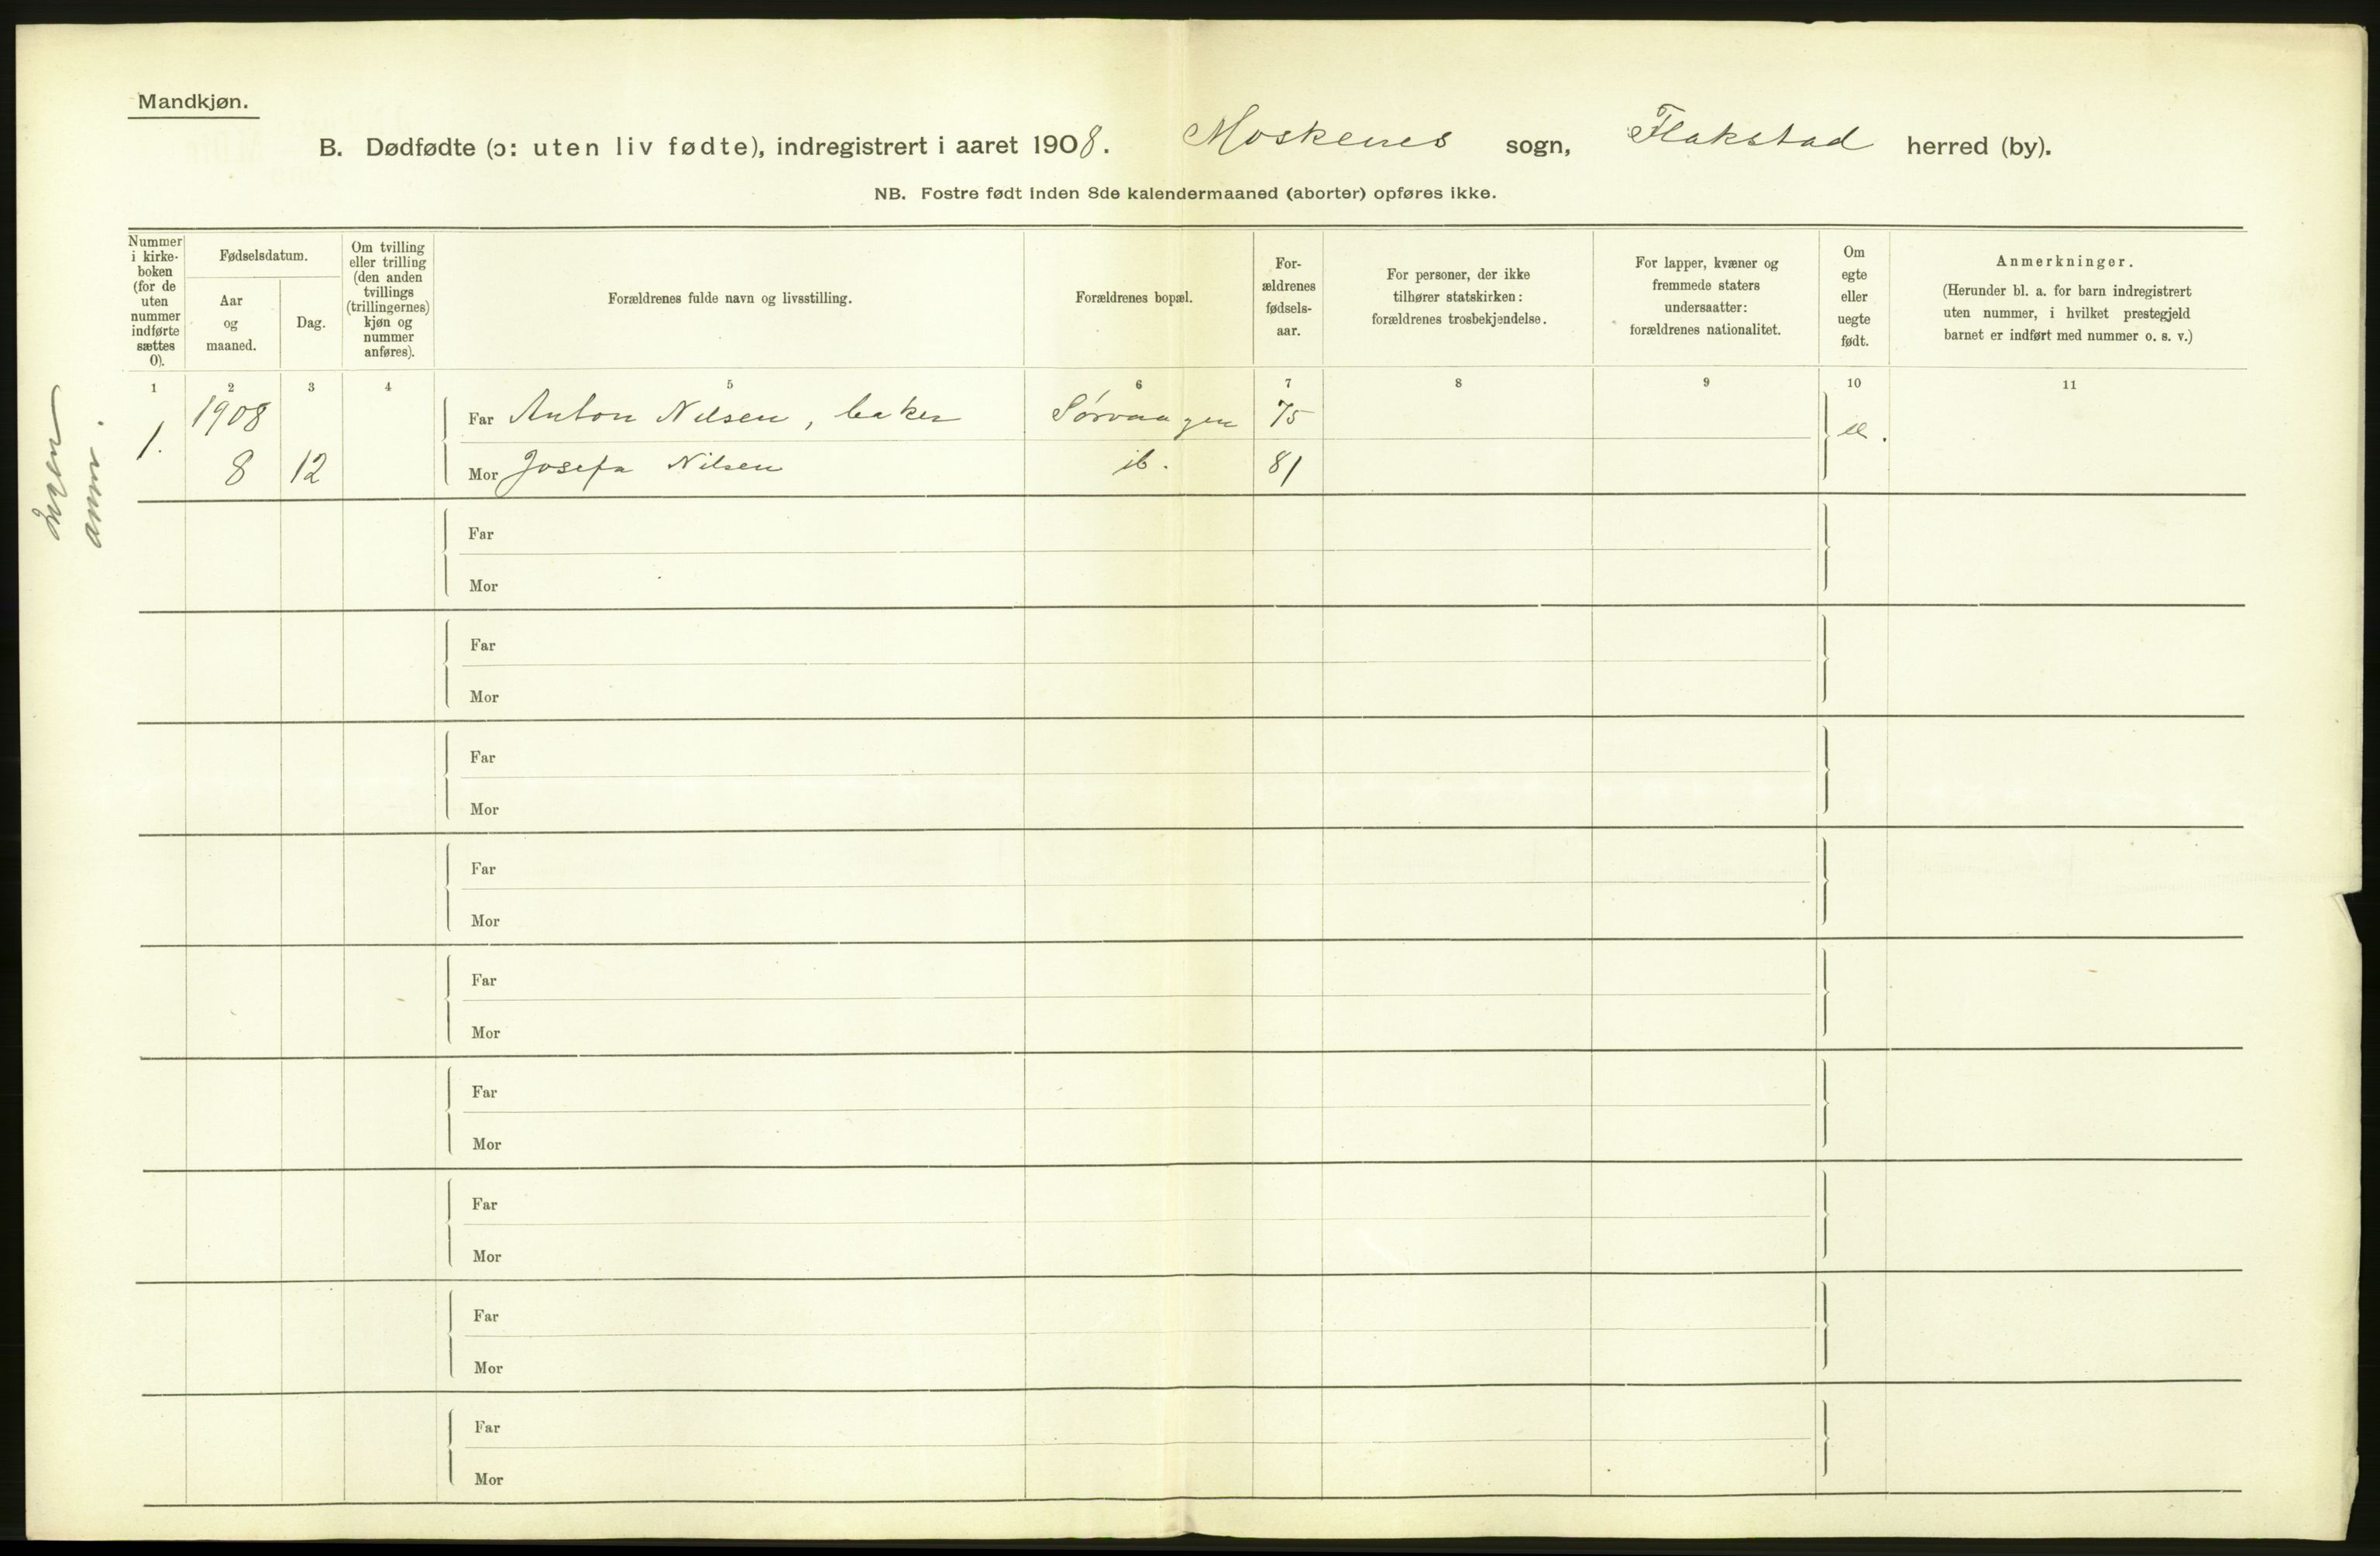 Mandkjøn.
B. Dødfødte (ɔ: uten liv fødte), indregistrert i aaret 1908. Moskenes sogn, Flakstad herred (by).
NB. Fostre født inden 8de kalendermaaned (aborter) opføres ikke.
Nummer i kirke-boken (for de uten nummer indførte sættes 0).
Fødselsdatum.
Aar og maaned.
Dag.
Om tvilling eller trilling (den anden tvillings (trillingernes) kjøn og nummer anføres).
Forældrenes fulde navn og livsstilling.
Forældrenes bopæl.
For-ældrenes fødsels-aar.
For personer, der ikke tilhører statskirken: forældrenes trosbekjendelse.
For lapper, kvæner og fremmede staters undersaatter: forældrenes nationalitet.
Om egte eller uegte født.
Anmerkninger.
(Herunder bl. a. for barn indregistrert uten nummer, i hvilket prestegjeld barnet er indført med nummer o. s. v.)
1 2 3 4 5 6 7 8 9 10 11
1908
Far Anton Nilsen, baker Sørvaagen 75
1.
8 12 Mor Josefa Nilsen ib. 81
Ingen
anm.
Far
Mor
Far
Mor
Far
Mor
Far
Mor
Far
Mor
Far
Mor
Far
Mor
Far
Mor
Far
Mor